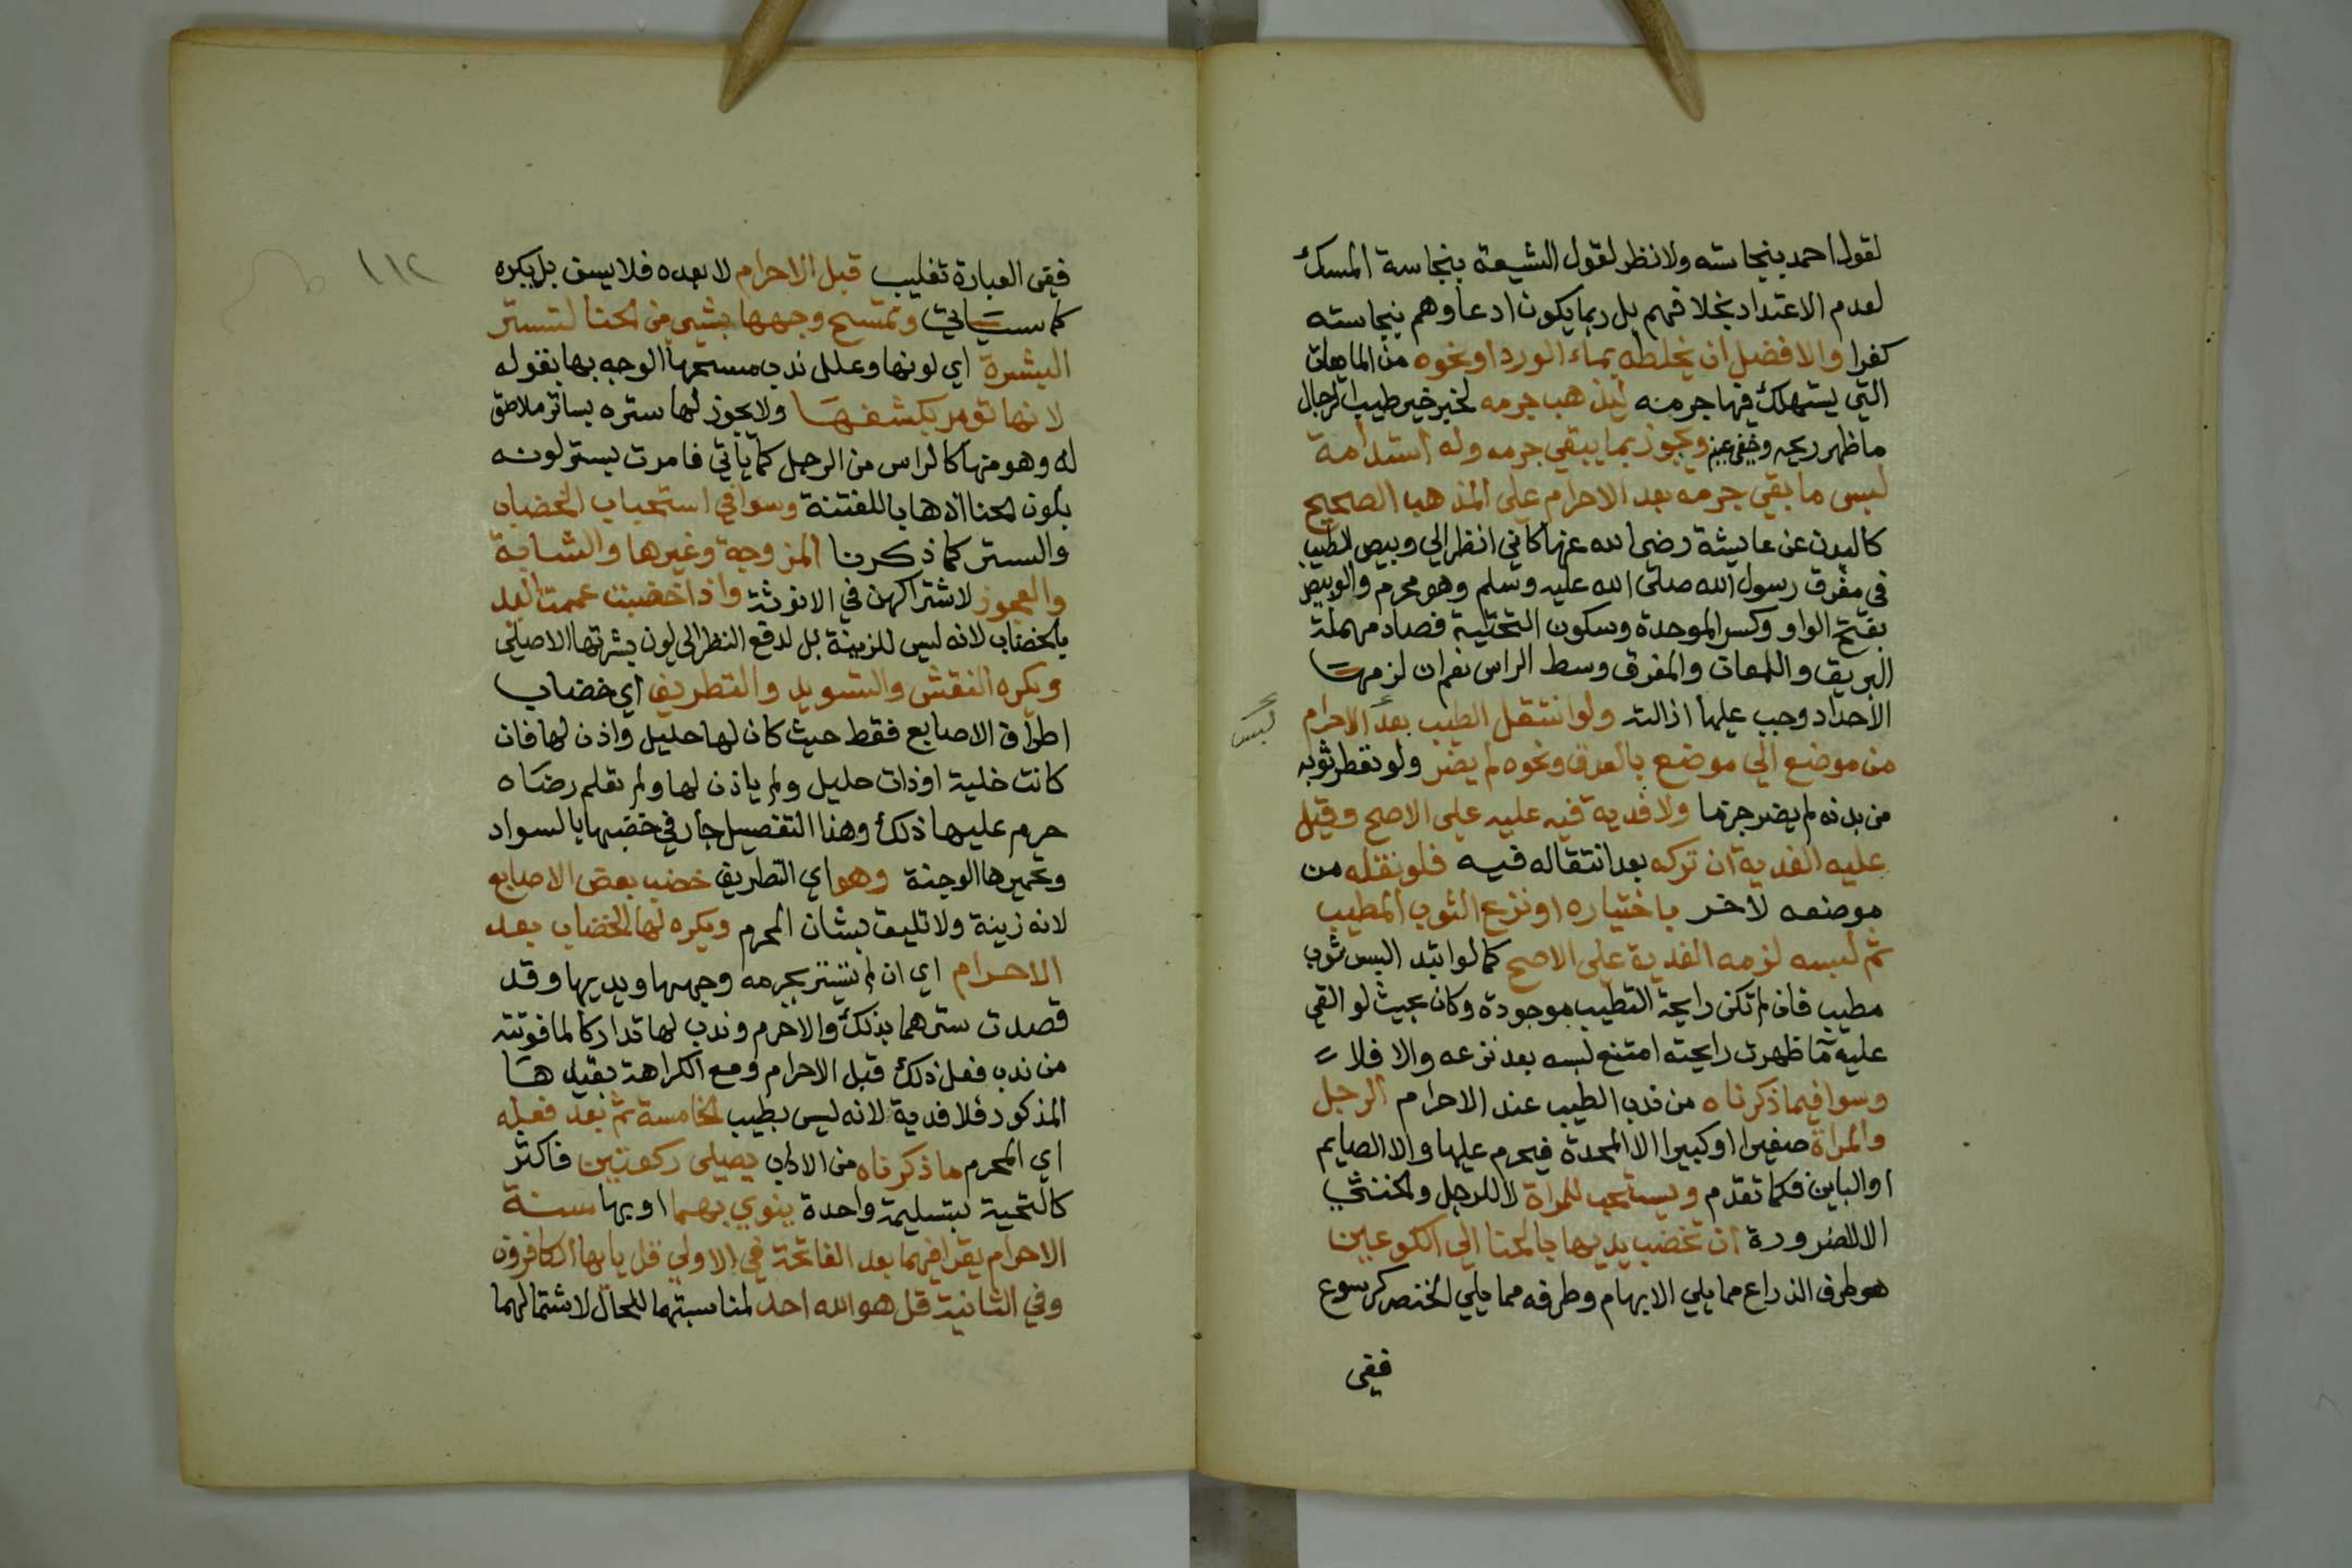 لقول احمد بنجاسته ولا نظر لقول الشيعة بنجاسة المسك
لعدم الاعتداد بخلافهم بل ربما يكون ادعاوهم بنجاسته
كفرا والافضل ان يخلطه بماء الورد او نحوه من المايعات
التي يستهلك فيها جرمه ليذهب جرمه لخبر خير طيب الرجال
ما ظهر ريحه وخفي عينه ويجوز بما يبقي جرمه وله استدامة
لبس ما بقي جرمه بعد الاحرام على المذهب الصحيح
كالبدن عن عايشة رضي الله عنها كاني انظر الي وبيص الطيب
في مفرق رسول الله صلى الله عليه وسلم وهو محرم والوبيص
بفتح الواو وكسر الموحدة وسكون التحتية فصاد مهملة
البريق واللمعان والمفرق وسط الراس نعم ان لزمها
الاحداد وجب عليها ازالته ولو انتقل الطيب بعد الاحرام
من موضع الي موضع بالعرق ونحوه لم يضر ولو تقطر ثوبه
من بدنه لم يضر جزما ولا فدية فيه عليه علي الاصح وقيل
عليه الفدية ان تركه بعد انتقاله فيه فلو نقله من
موضعه لاخر باختياره او نزع الثوب المطيب
ثم لبسه لزمه الفدية على الاصح كما لو ابتدا لبس ثوب
مطيب فان لم تكن رايحة التطيب موجودة وكان بحيث لو القي
عليه ما ظهرت رايحته امتنع لبسه بعد نزعه والا فلا
وسوا فيما ذكرناه من ندب الطيب عند الاحرام الرجل
والمراة صغيرا او كبيرا الا المحدة فيحرم عليها والا الصايم
او الباين فكما تقدم ويستحب للمراة لا للرجل والخنثي
الا لضرورة ان تخضب يديها بالحنا الي الكوعين
هو طرف الذراع مما يلي الابهام وطرفه مما يلي الخنصر كرسوع
ففي
لبس
١١٢
ففي العبارة تغليب قبل الاحرام لا بعده فلا يسن بل يكره
كما سياتي وتمسح وجهها بشي من الحنا لتستر
البشرة اي لونها وعلل ندب مسحها الوجه بها بقوله
لانها تومر بكشفها ولا يجوز لها ستره بساتر ملاصق
له وهو منها كالراس من الرجل كما ياتي فامرت بستر لونه
بلون الحنا اذهابا للفتنة وسوا في استحباب الخضاب
والستر كما ذكرنا المزوجة وغيرها والشابة
والعجوز لاشتراكهن في الانوثة واذا خضبت عممت اليد
بالخضاب لانه ليس للزينة بل لدفع النظر الى لون بشرتها الاصلي
ويكره النقش والتسويد والتطريف اي خضاب
اطراف الاصابع فقط حيث كان لها حليل واذن لها فان
كانت خلية او ذات حليل ولم ياذن لها ولم تعلم رضاه
حرم عليها ذلك وهذا التفصيل جار في خضبها بالسواد
وتحميرها الوجنة وهو اي التطريف خضب بعض الاصابع
لانه زينة ولا تليق بشان المحرم ويكره لها الخضاب بعد
الاحرام اي ان لم تستر بجرمه وجهها ويديها وقد
قصدت سترهما بذلك والا حرم وندب لها تداركا لما فوتته
من ندب فعل ذلك قبل الاحرام ومع الكراهة بقيدها
المذكور فلا فدية لانه ليس بطيب الخامسة ثم بعد فعله
اي المحرم ما ذكرناه من الاداب يصلي ركعتين فاكثر
كالتحية بتسليمة واحدة ينوي بهما او بها سنة
الاحرام يقرا فيهما بعد الفاتحة في الاولي قل يايها الكافرون
وفي الثانية قل هو الله احد لمناسبتهما للحال لاشتمالهما